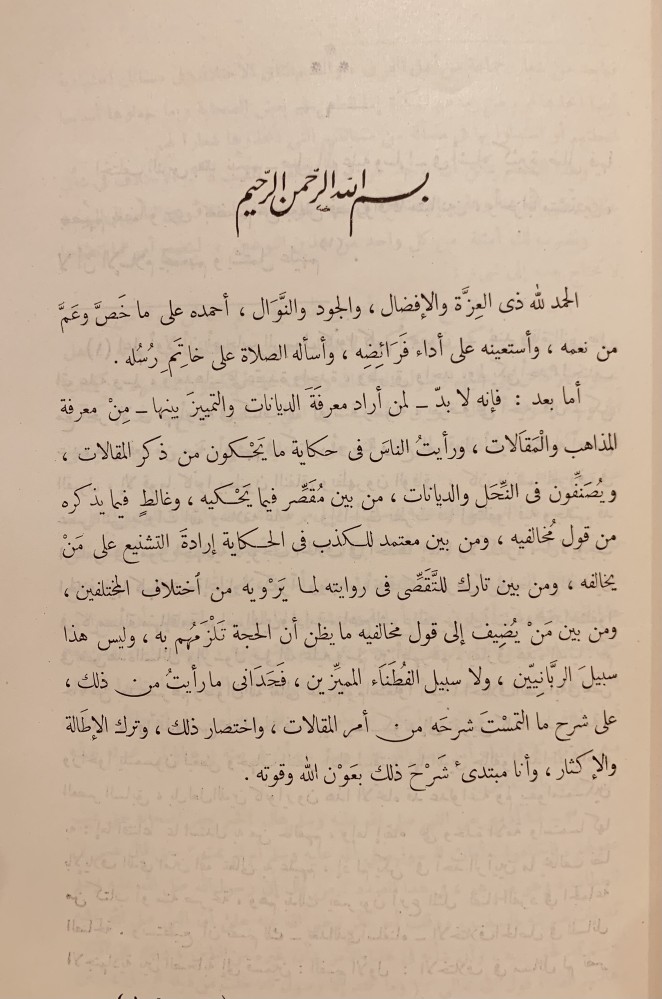 بسم الله الرحمن الرحيم
الحمد لله ذى العِزَّة والإفضال ، والجود والنَّوَال ، أحمده على ما خَصَّ وعَمَّ
من نعمه ، وأستعينه على أداء فَرَائِضِه ، وأسأله الصلاة على خاتِمَ رُسُله .
أما بعد : فإنه لا بدّ ــ لمن أراد معرفَةَ الديانات والتمييزَ بينها ــ مِنْ معرفة
المذاهب والْمَقَالات ، ورأيتُ الناسَ فى حكاية ما يَحْكون من ذكر المقالات ،
ويُصَنِّفُون فى النِّحَل والديانات ، من بين مُقَصِّر فيما يَحْكيه ، وغالطٍ فيما يذكره
من قول مُخالفيه ، ومن بين معتمد للكذب فى الحكاية إرادةَ التشنيع على مَنْ
يخالفه ، ومن بين تارك للتَّقَصِّى فى روايته لما يَرْويه من اختلاف المختلفين ،
ومن بين مَنْ يُضِيف إلى قول مخالفيه ما يظن أن الحجة تَلْزَمُهُم به ، وليس هذا
سبيلَ الرَّبَّانِيِّين ، ولا سبيل الفُطَنَاء المميزِّين ، فَحَدَانى ما رأيتُ من ذلك ،
على شرح ما التمسْتَ شرحَه من أمر المقالات ، واختصار ذلك ، وترك الإطالة
والإكثار ، وأنا مبتدىء شَرْحَ ذلك بعَوْن الله وقوته .